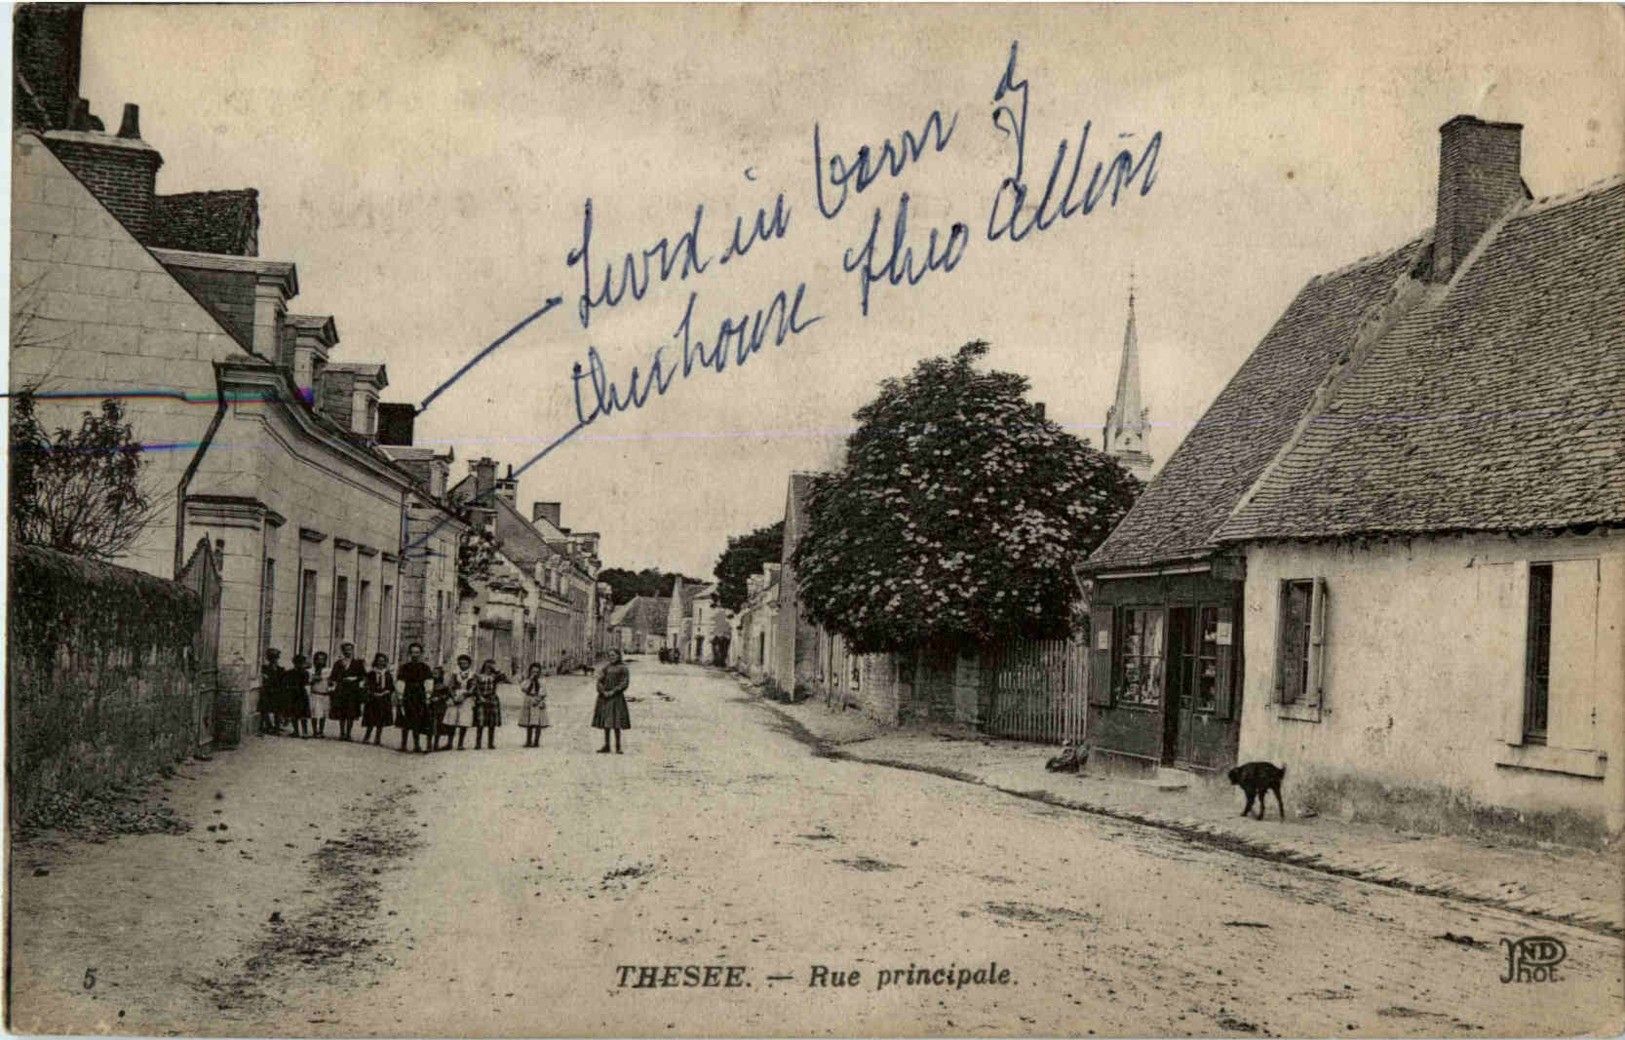 Lived in barn of
this house theo Allin
5
THESEE. — Rue principale.
ND Phot.